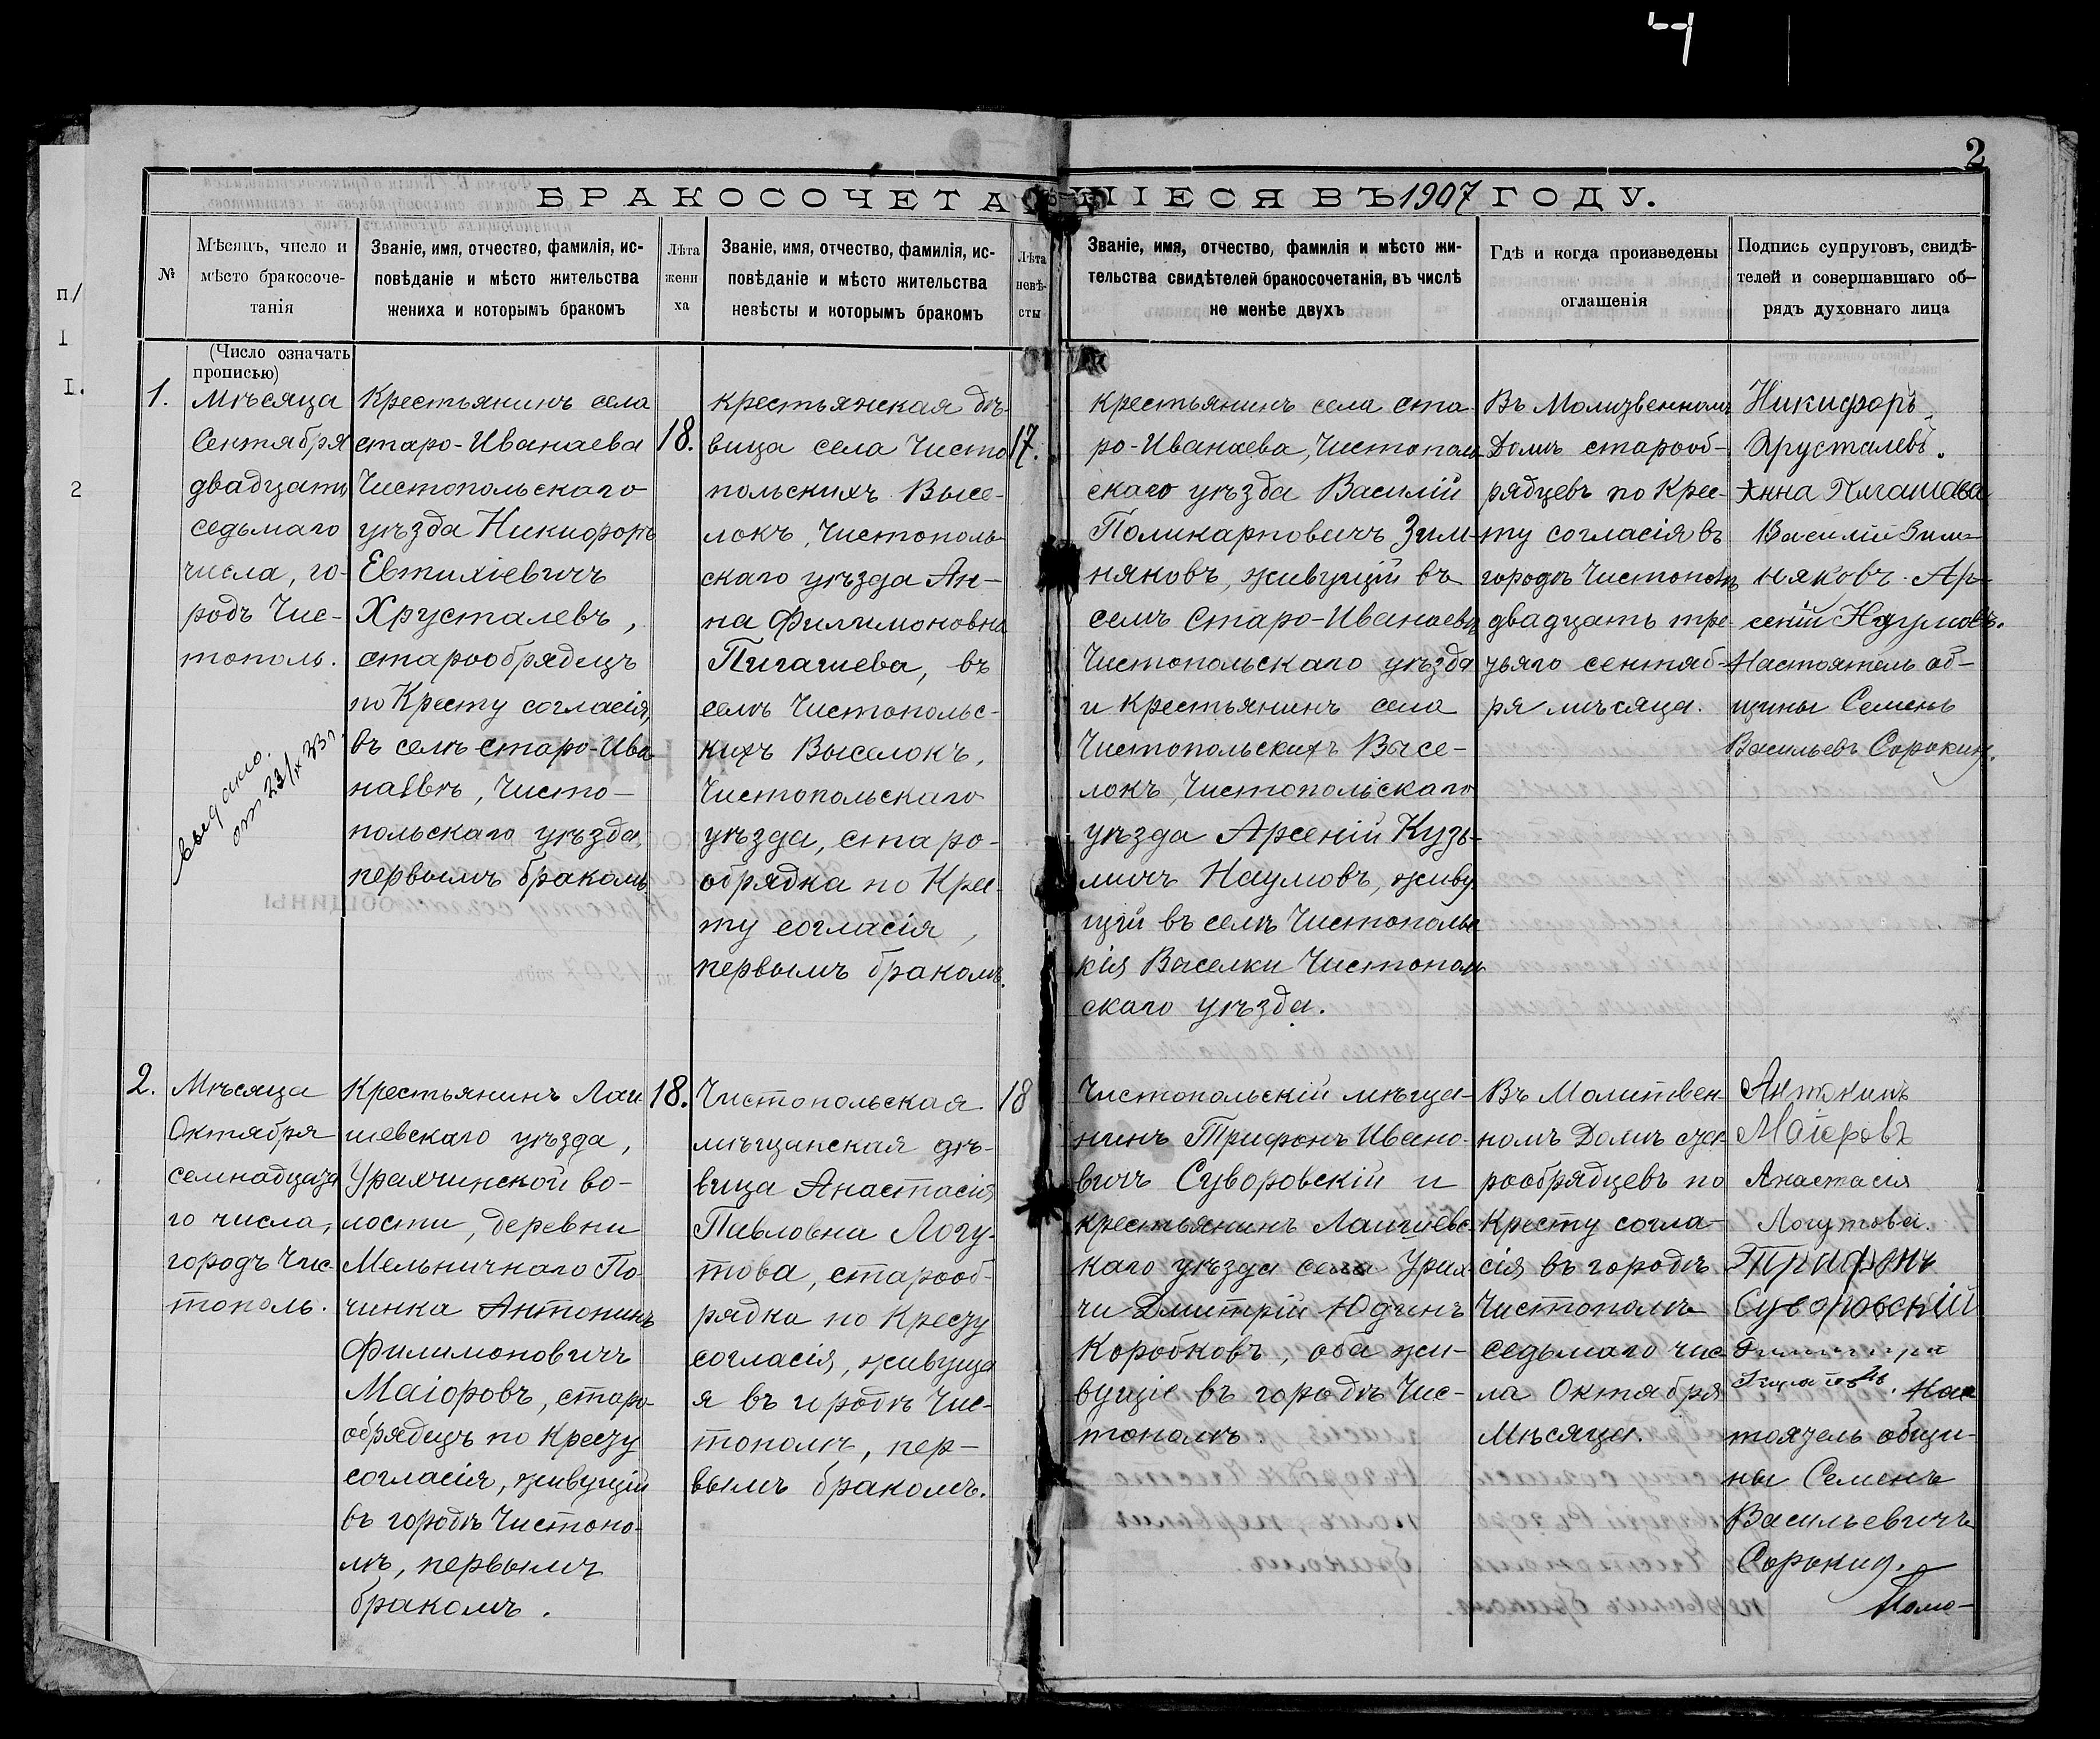 2
БРАКОСОЧЕТАВШIЕСЯ ВЪ 1907 ГОДУ.
№
Мѣсяцъ, число и
мѣсто бракосоче-
танія
Званіе, имя, отчество, фамилія, ис-
повѣданіе и мѣсто жительства
жениха и которымъ бракомъ
Лѣта
жени
ха
Званіе, имя, отчество, фамилія, ис-
повѣданіе и мѣсто жительства
невѣсты и которымъ бракомъ
Лѣта
невѣ-
сты
Званіе, имя, отчество, фамилія и мѣсто жи-
тельства свидѣтелей бракосочетанія, въ числѣ
не менѣе двухъ
Гдѣ и когда произведены
оглашенія
Подпись супруговъ, свидѣ-
телей и совершавшаго об-
рядъ духовнаго лица
(Число означать
прописью)
1.
Мѣсяца
Сентября
двадцать
седьмаго
числа, го-
родъ Чис-
тополь.
Крестьянинъ села
старо-Иванаева
Чистопольскаго
уѣзда Никифоръ
Евтихіевичъ
Хрусталевъ,
старообрядецъ
по Кресту согласія,
въ селѣ старо-Ива
наевѣ, Чисто-
польскаго уѣзда,
первымъ бракомъ.
18.
крестьянская дѣ-
вица села Чисто
польскихъ Высе-
локъ, Чистополь-
скаго уѣзда Ан-
на Филимоновна
Пигашева, въ
селѣ Чистопольс-
кихъ Выселокъ,
Чистопольскаго
уѣзда, старо-
обрядка по Крес-
ту согласія,
первымъ бракомъ.
17.
крестьянинъ села ста
ро-Иванаева, Чистополь
скаго уѣзда Василій
Поликарповичъ Зим-
няковъ, живущій въ
селѣ Старо-Иванаевѣ
Чистопольскаго уѣзда
и крестьянинъ села
Чистопольскихъ Высе-
локъ, Чистопольскаго
уѣзда Арсеній Кузь-
мичъ Наумовъ, живу
щій въ селѣ Чистопольс
кія Выселки Чистополь
скаго уѣзда.
Въ Молитвенномъ
Домѣ старооб-
рядцевъ по Крес-
ту согласія въ
городѣ Чистополѣ
двадцать тре-
тьяго сентяб-
ря мѣсяца.
Никифоръ
Хрусталевъ.
Анна Пигашева
Василій Зим-
няковъ. Ар-
сеній Наумовъ.
Настоятель об-
щины Семенъ
Васильевъ Сорокинъ.
2.
Мѣсяца
Октября
семнадцата
го числа,
городъ Чис-
тополь.
Крестьянинъ Лаи
шевскаго уѣзда,
Урахчинской во-
лости, деревни
Мельничнаго По-
чинка Антонинъ
Филимоновичъ
Маіоровъ, старо-
обрядецъ по Кресту
согласія, живущій
въ городѣ Чистопо-
лѣ, первымъ
бракомъ.
18.
Чистопольская
мѣщанская дѣ-
вица Анастасія
Павловна Логу-
това, старооб-
рядка по Кресту
согласія, живуща
я въ городѣ Чис-
тополѣ, пер-
вымъ бракомъ.
18
Чистопольскій мѣща-
нинъ Трифонъ Ивано-
вичъ Суворовскій и
крестьянинъ Лаишевс
каго уѣзда села Урах
чи Дмитрій Юдинъ
Коробковъ, оба жи-
вущіе въ городѣ Чис-
тополѣ.
Въ Молитвен-
номъ Домѣ ста-
рообрядцевъ по
Кресту согла-
сія въ городѣ
Чистополѣ
седьмаго чис
ла Октября
Мѣсяца.
Антонинъ
Маіоровъ
Анастасія
Логутова.
Трифонъ
Суворовскій
Нас
тоятель общи-
ны Семенъ
Васильевичъ
Сорокинъ.